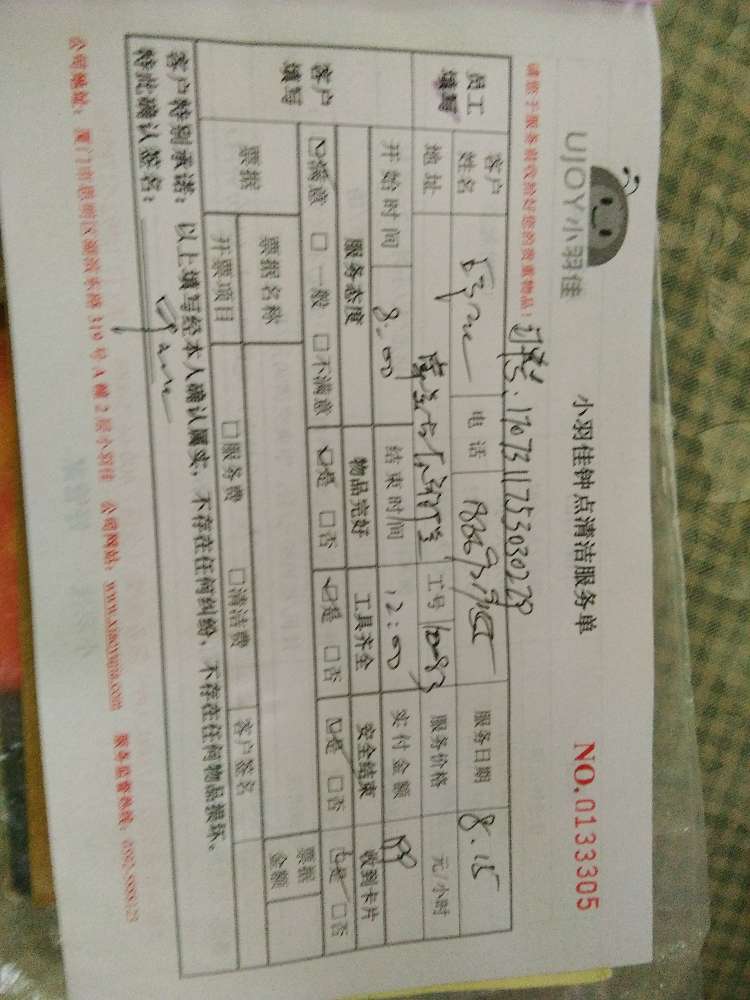 UJOY小羽佳
小羽佳钟点清洁服务单
NO.0133305
请您于服务前收拾好您的贵重物品！
订单号：1707311753030228
员工填写
客户姓名
电话
服务日期 8.15
地址
工号
服务价格 元/小时
开始时间 8:00
结束时间 12:00
实付金额
客户填写
服务态度 物品完好 工具齐全 安全结束 收到卡片
☑满意 □一般 □不满意 ☑是 □否 ☑是 □否 ☑是 □否 ☑是 □否
票据
票据名称
票据金额
开票项目 □服务费 □清洁费 客户签名
客户特别承诺：以上填写经本人确认属实，不存在任何纠纷，不存在任何物品损坏。
特此确认签名：
公司地址：厦门市思明区湖滨东路319号A幢2层小羽佳 公司网站：www.xiaoyujia.com 服务监督热线：0592-8888123